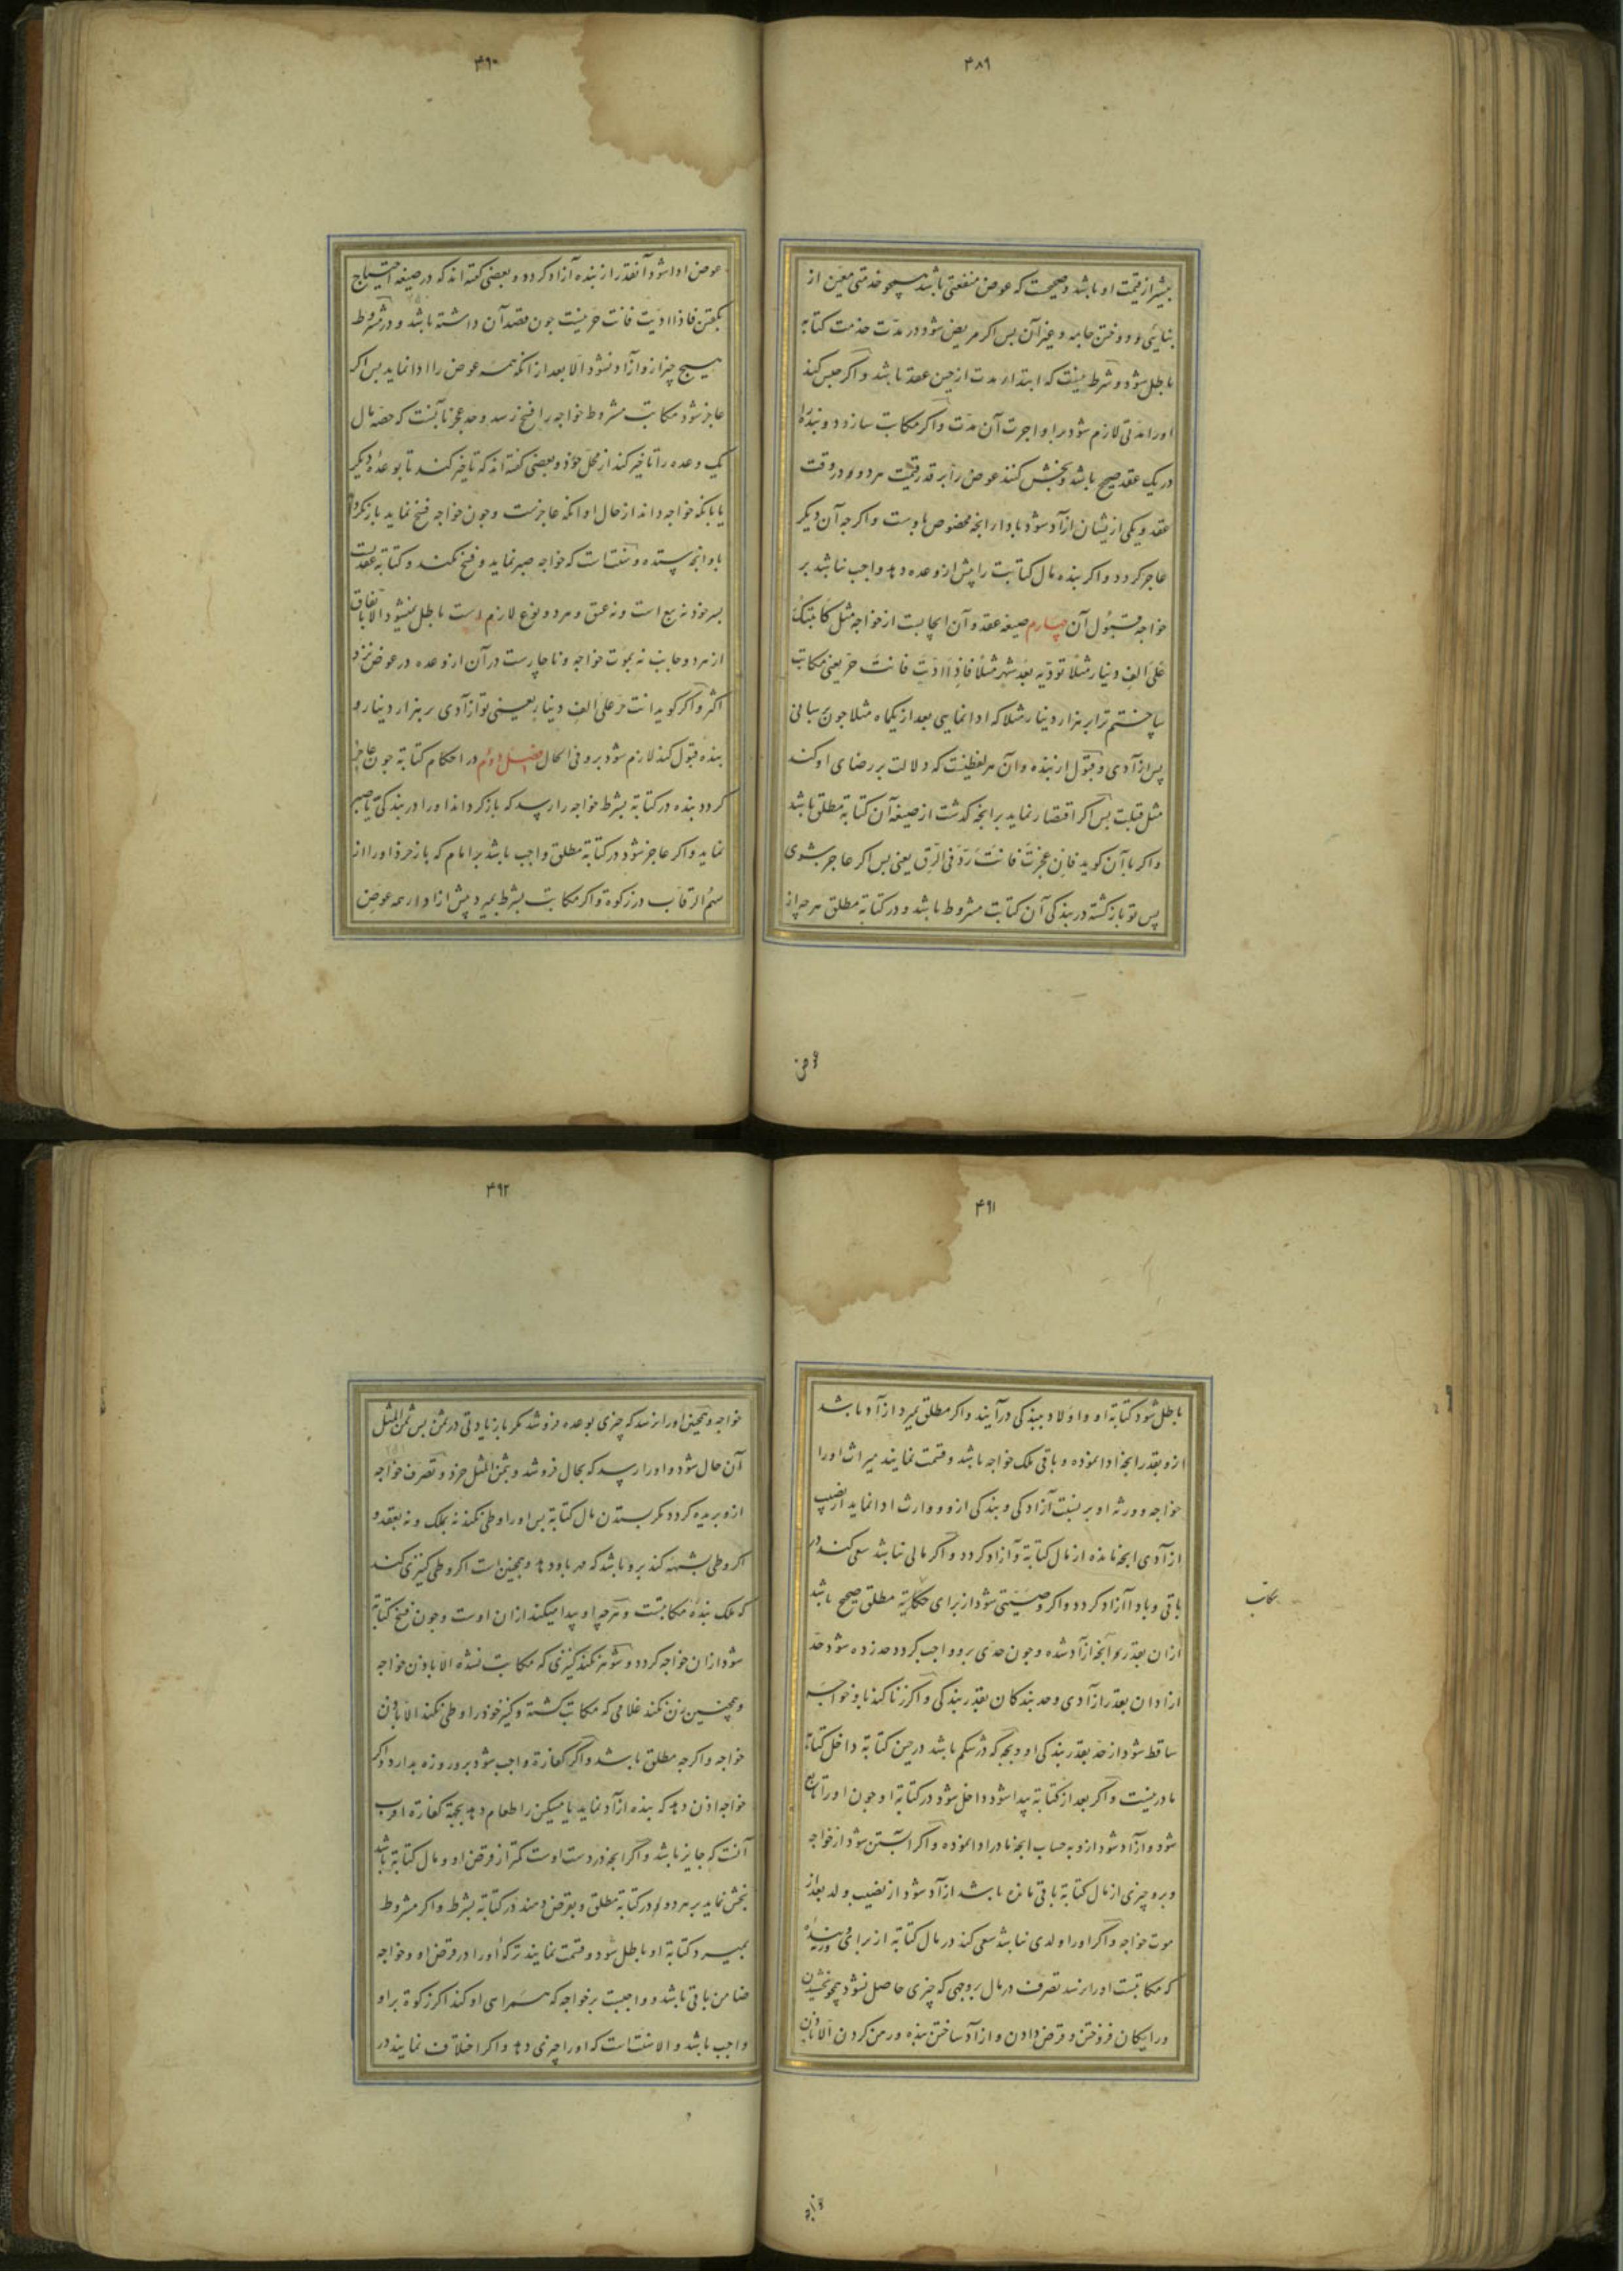 ۴۸۹
بیشتر از قیمت او باشد و صحیحست که عوض منفعتی باشد همچو خدمتی معین از
بنایی و دوختن جامه و غیر آن پس اگر مریض شود در مدت خدمت کتابه
باطل شود و شرط نیست که ابتداء مدت از حین عقد باشد و اگر حبس کند
او را مدتی لازم شود برو اجرت آن مدت و اگر مکاتب سازد دو بنده را
در یک عقد صحیح باشد و بخش کنند عوض را بر قدر قیمت هر دو در وقت
عقد و یکی ازیشان ازآد شود بادا انچه مخصوص باوست و اگرچه آن دیگر
عاجز کردد و اگر بنده مال کتابت را پیش از وعده دهد واجب نباشد بر
خواجه قبول آن چهارم صیغه عقد و آن ایجابست از خواجه مثل کاتبتک
علی الف دینار مثلا تؤدیه بعد شهر مثلا فاذا ادیت فانت حر یعنی مکاتب
ساختم ترا بر هزار دینار مثلا که ادا نمایی بعد از یکماه مثلا چون برسانی
پس ازآدی و قبول از بنده و آن هر لفظیست که دلالت بر رضای او کند
مثل قبلت پس اگر اقتصار نماید بر انچه کذشت از صیغه آن کتابة مطلق باشد
و اگر با آن کوید فان عجزت فانت رد فی الرق یعنی پس اگر عاجز شوی
پس تو بازکشته در بندکی آن کتابت مشروط باشد و در کتابة مطلق هرچه از
عوض
۴۹۰
عوض ادا شود آنقدر از بنده آزاد کردد و بعضی کفته اند که در صیغه احتیاج
بکفتن فاذا ادیت فانت حر نیست چون قصد آن داشته باشد و در مشروط
هیچ چیز ازو ازآد نشود الا بعد از انکه همه عوض را ادا نماید پس اگر
عاجز شود مکاتب مشروط خواجه را فسخ رسد و حد عجز انست که حصه مال
یک وعده را تاخیر کند از محل خوذ و بعضی کفته اند که تاخیر کند تا بوعده دیگر
یا بانکه خواجه داند از حال او انکه عاجزست و چون خواجه فسخ نماید باز نکرداند
باو انچه ستده و سنتست که خواجه صبر نماید و فسخ نکند و کتابة عقدیست
بسر خوذ نه بیع است و نه عتق و هر دو نوع لازم است باطل نمیشود الا باتفاق
از هر دو جانب نه بموت خواجه و ناچارست در آن از وعده در عوض نزد
اکثر و اگر کوید انت حر علی الف دینار یعنی تو ازآدی بر هزار دینار و
بنده قبول کند لازم شود برو فی الحال فصل دوم در احکام کتابة چون عاجز
کردد بنده در کتابة بشرط خواجه را رسد که باز کرداند او را در بندکی یا صبر
نماید و اگر عاجز شود در کتابة مطلق واجب باشد بر امام که باز خرد او را از
سهم الرقاب در زکوة و اگر مکاتب بشرط بمیرد پیش از ادا همه عوض
۴۹۱
باطل شود کتابة او و اولاد ببندکی درآیند و اگر مطلق بمیرد ازآد باشد
ازو بقدر انچه ادا نموده و باقی ملک خواجه باشد و قسمت نمایند میراث او را
خواجه و ورثه او بر نسبت آزادکی و بندکی ازو و وارث ادا نماید از نصیب
ازآدی انچه مانده از مال کتابة و آزاد کردد و اگر مالی نباشد سعی کند در
باقی و بادا آزاد کردد و اگر وصیتی شود از برای مکاتبة مطلق صحیح باشد
مکاتب
ازان بقدر انچه ازآد شده و چون حدی برو واجب کردد حد زده شود حد
ازادان بقدر ازآدی و حد بندکان بقدر بندکی و اگر زنا کند با خواجه
ساقط شود از حد بقدر بندکی او و بچه که در شکم باشد در حین کتابة داخل کتابة
مادر نیست و اگر بعد از کتابة پیدا شود داخل شود در کتابة او چون او را تابع
شود و ازآد شود ازو بحساب انچه مادر ادا نموده و اگر آبستن شود از خواجه
و برو چیزی از مال کتابة باقی مانده باشد ازآد شود از نصیب ولد بعد از
موت خواجه و اگر او را ولدی نباشد سعی کند در مال کتابة از برای ورثه و بنده
که مکاتبست او را نرسد تصرف در مال بروجهی که چیزی حاصل نشود همچو بخشیدن
و رایکان فروختن و قرض دادن و ازآد ساختن بنده و رهن کردن الا باذن
۴۹۲
خواجه و همچنین او را نرسد که چیزی بوعده فروشد مگر بازیادتی در ثمن پس ثمن المثل
آن حال شود و او را رسد که بحال فروشد و بثمن المثل خرد و تصرف خواجه
ازو بریده کردد مگر بستدن مال کتابة پس او را وطی نکند نه بملک و نه بعقد و
اگر وطی بشبهه کند برو باشد که مهر باو دهد و همچنین است اگر وطی کنیزی کند
که ملک بنده مکاتبست و هرچه او پیدا میکند ازان اوست و چون فسخ کتابة
شود ازان خواجه کردد و شوهر نکند کنیزی که مکاتبت شده الا باذن خواجه
و همچنین زن نکند غلامی که مکاتب کشته و کنیز خوذ را وطی نکند الا باذن
خواجه و اگرچه مطلق باشد و اگر کفارة واجب شود برو روزه بدارد و اگر
خواجه اذن دهد که بنده ازآد نماید یا مسکین را طعام دهد بجهة کفارة اقرب
آنست که جایز باشد و اگر انچه در دست اوست کمتر از قرض او و مال کتابة باشد
بخش نماید بر هر دو در کتابة مطلق و بقرض دهند در کتابة بشرط و اگر مشروط
بمیرد کتابة او باطل شود و قسمت نمایند ترکه او را در قرض او و خواجه
ضامن باقی باشد و واجبست بر خواجه که همراهی او کند اگر زکوة برو
واجب باشد و الا سنتست که او را چیزی دهد و اگر اختلاف نمایند در